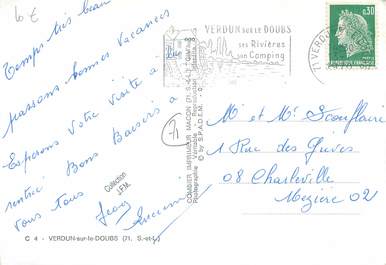 10 €
Temps très beau
passons bonnes vacances
Espérons Votre visite à la
rentrée Bons Baisers à
vous tous Jean
VERDUN SUR LE DOUBS
ses Rivières
son Camping
0,30
REPUBLIQUE FRANCAISE
71 VERDUN
71
Collection
J.F.M.
COMBIER IMPRIMEUR MACON (71. S.-&-L.)
© by S.P.A.D.E.M.
M et Mme
1 Rue des
08 Charleville
Mézière 02
C 4 - VERDUN-sur-le-DOUBS (71. S.-et-L.)